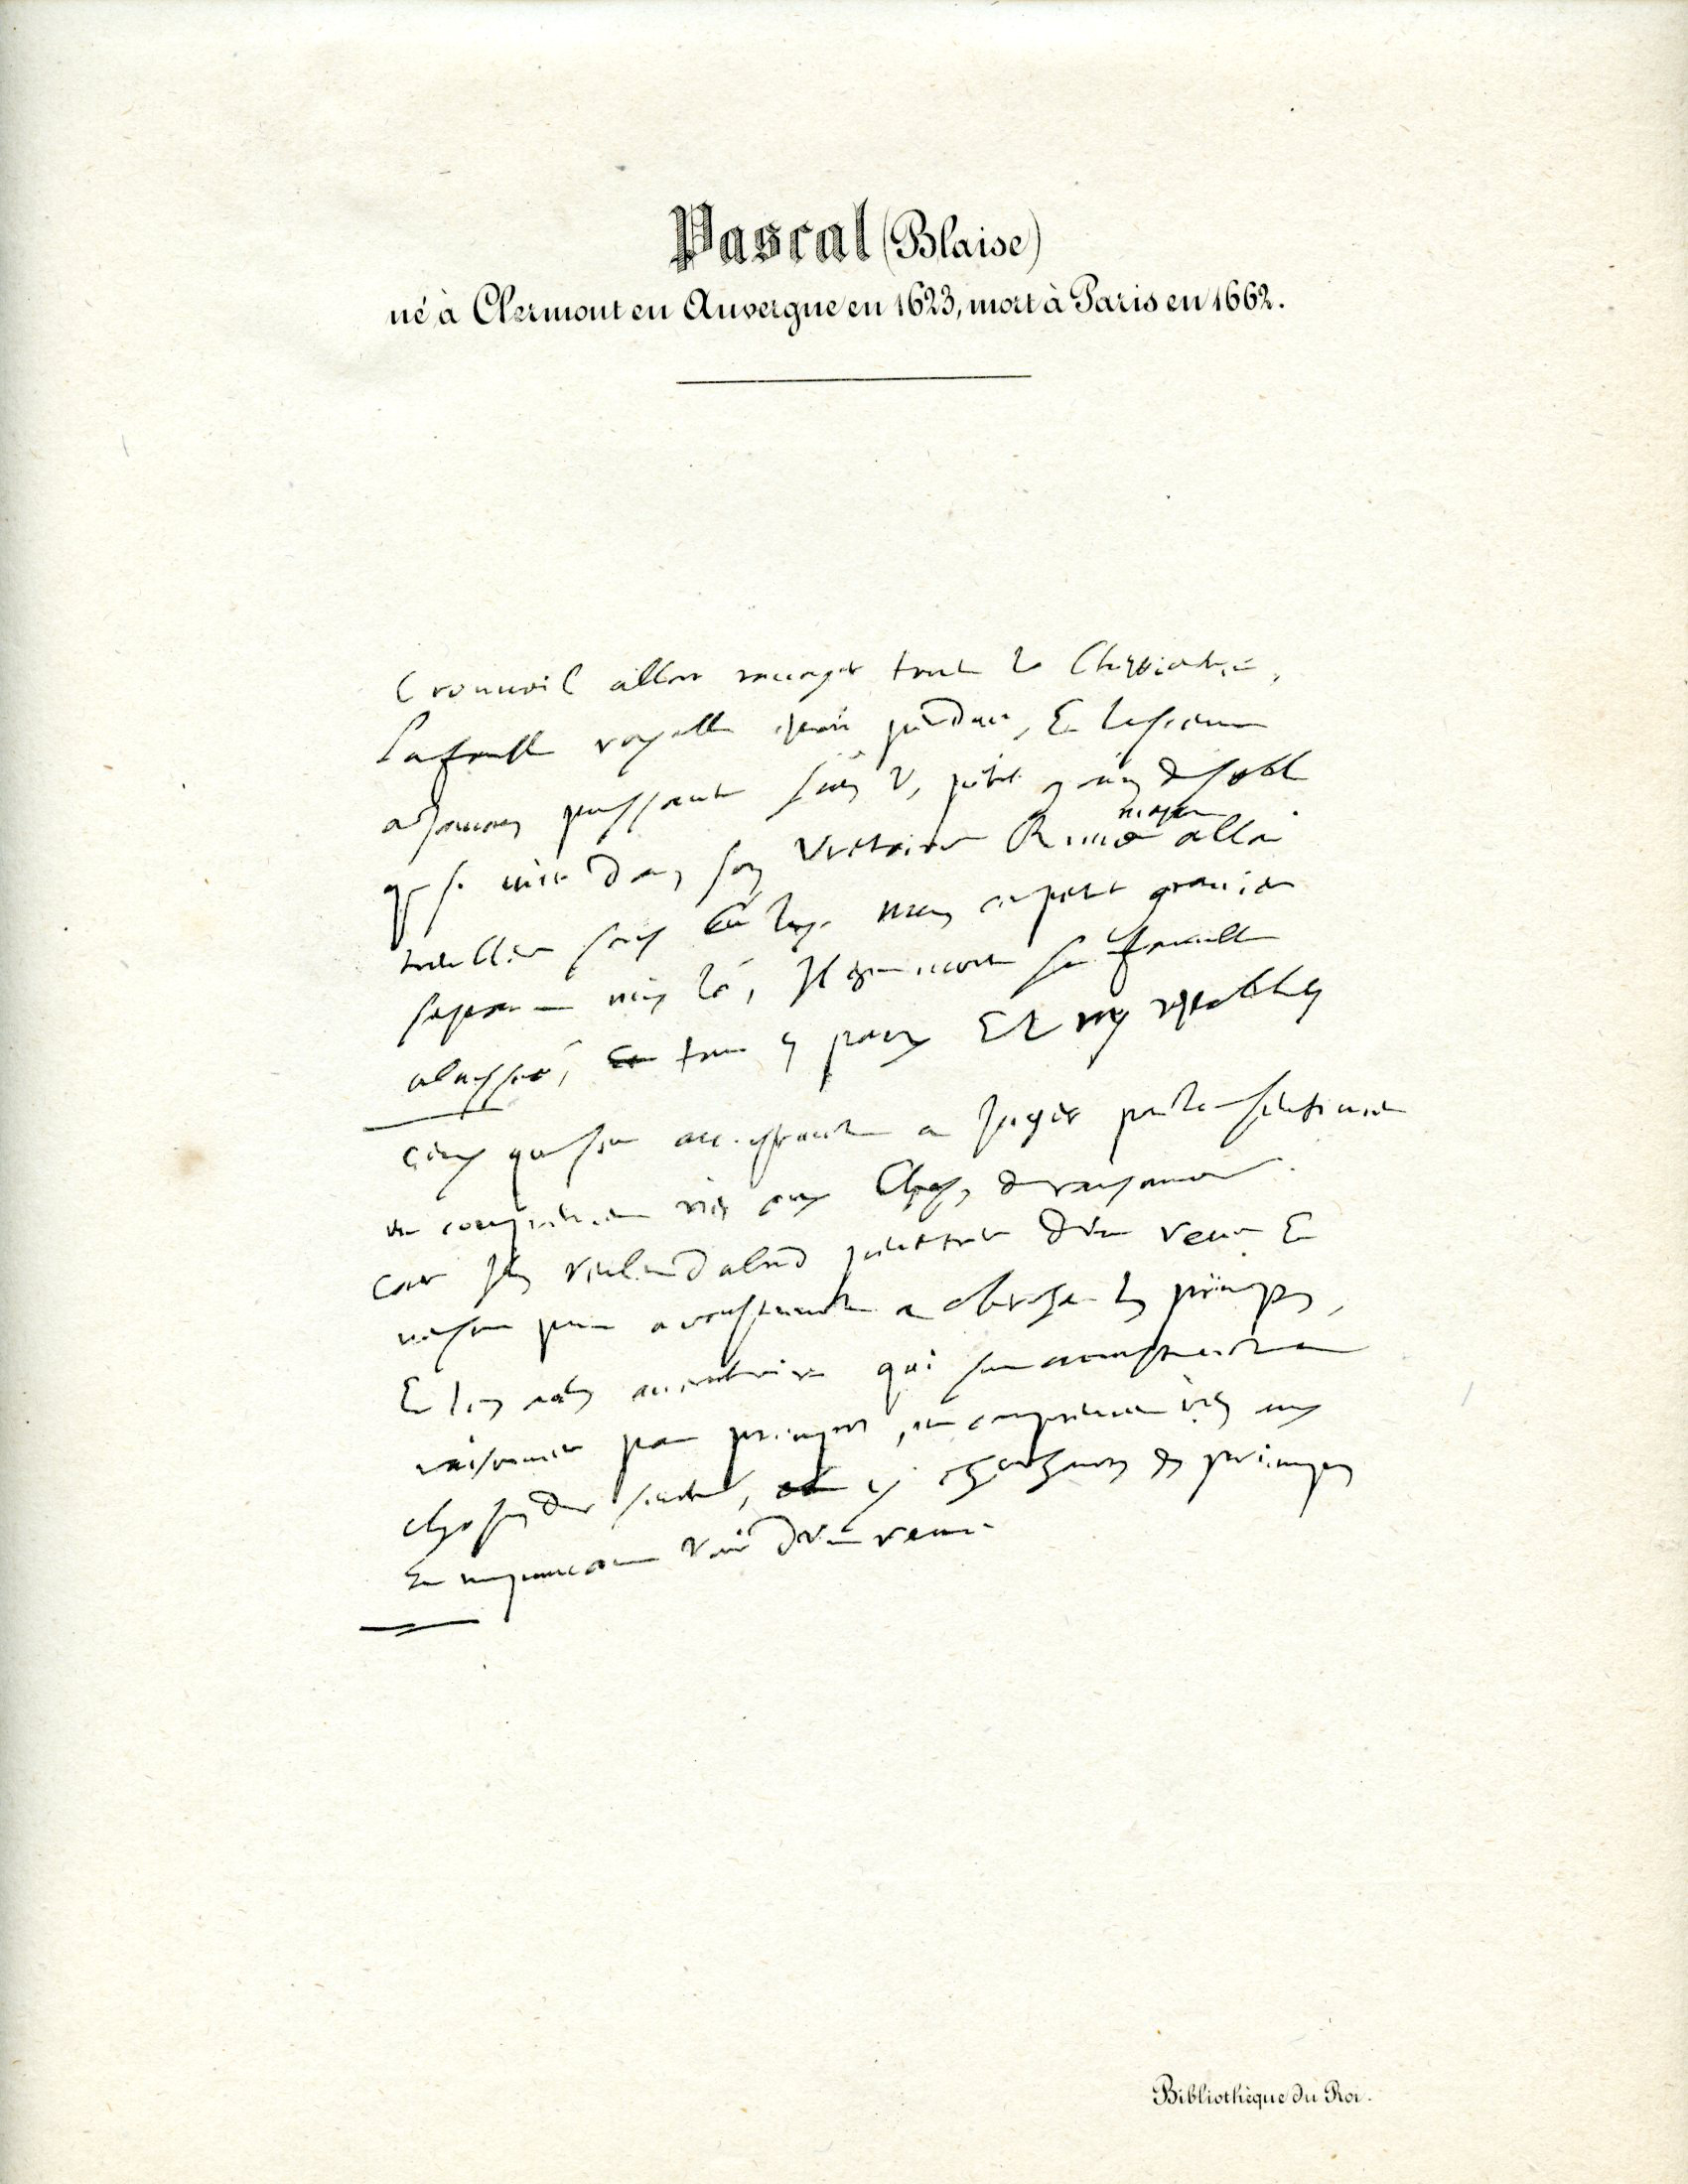 Pascal (Blaise)
né à Clermont en Auvergne en 1623, mort à Paris en 1662.
Cromwel alloit ravager toute la Chrestienté,
la famille royalle estoit perdue, Et la sienne
a jamais puissante sans un petit grain de sable
qui se mit dans son uretaire Rome mesme alloit
trembler sous luy. mais ce petit gravier
s'estant mis là, Il est mort sa famille
abaissée, tout en paix Et le roy restably
Ceux qui sont accoustumez a Juger par le sentiment
ne comprennent rien aux Choses de raisonnement
car Ils veulent d'abord penetrer d'une veue Et
ne sont point accoustumez a chercher les principes,
Et les autres au contraire qui sont accoustumez a
raisonner par principes, ne comprennent rien aux
choses de sentiment, y cherchans des principes
Et ne pouvans voir d'une veue.
Bibliothèque du Roi.